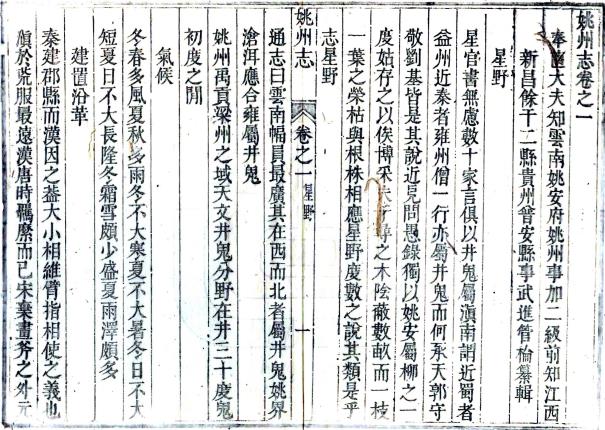 姚州志卷之一
奉直大夫知雲南姚安府姚州事加二級前知江西
新昌餘干二縣貴州普安縣事武進管棆纂輯
星野
星官書無慮數十家言俱以井鬼屬滇南謂近蜀者
益州近秦者雍州僧一行亦屬井鬼而何承天郭守
敬劉基皆是其說近見問愚錄獨以姚安屬柳之一
度姑存之以俟博采夫尋之木陰蔽數畝而一枝
一葉之榮枯與根株相應星野度數之說其類是乎
志星野
姚州志
卷之一
星野
一
通志曰雲南幅員最廣其在西而北者屬井鬼姚界
滄洱應合雍屬井鬼
姚州禹貢梁州之域天文井鬼分野在井三十度鬼
初度之間
氣候
冬春多風夏秋多雨冬不大寒夏不大暑冬日不大
短夏日不大長隆冬霜雪頗少盛夏雨澤頗多
建置沿革
秦建郡縣而漢因之葢大小相維臂指相使之義也
顧於荒服最遠漢唐時羈縻而已宋棄畫斧之外元